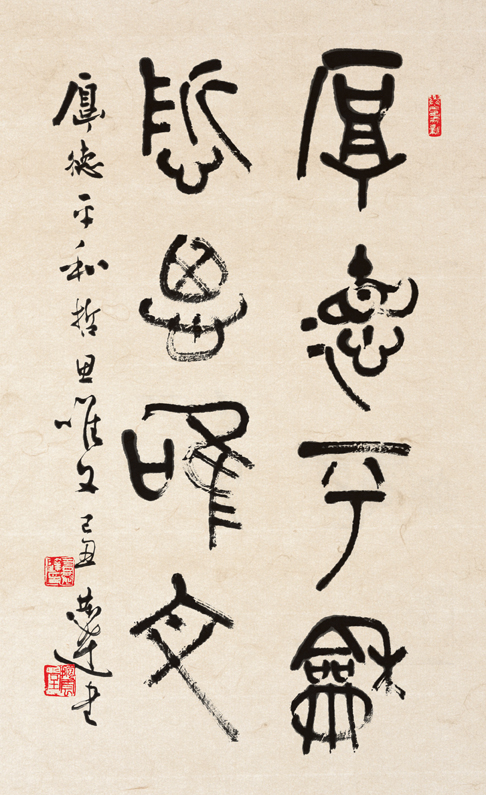 厚德平龢
悊思唯文
厚德平和哲思唯文己丑